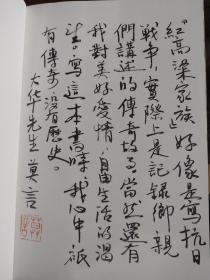 『紅高粱家族』好像是寫抗日
戰爭,實際上是記錄鄉親
們講述的傳奇故事,當然還有
我對美好愛情、自由生活的渴
望。寫這本書時,我心中祇
有傳奇,沒有歷史。
大华先生 莫言